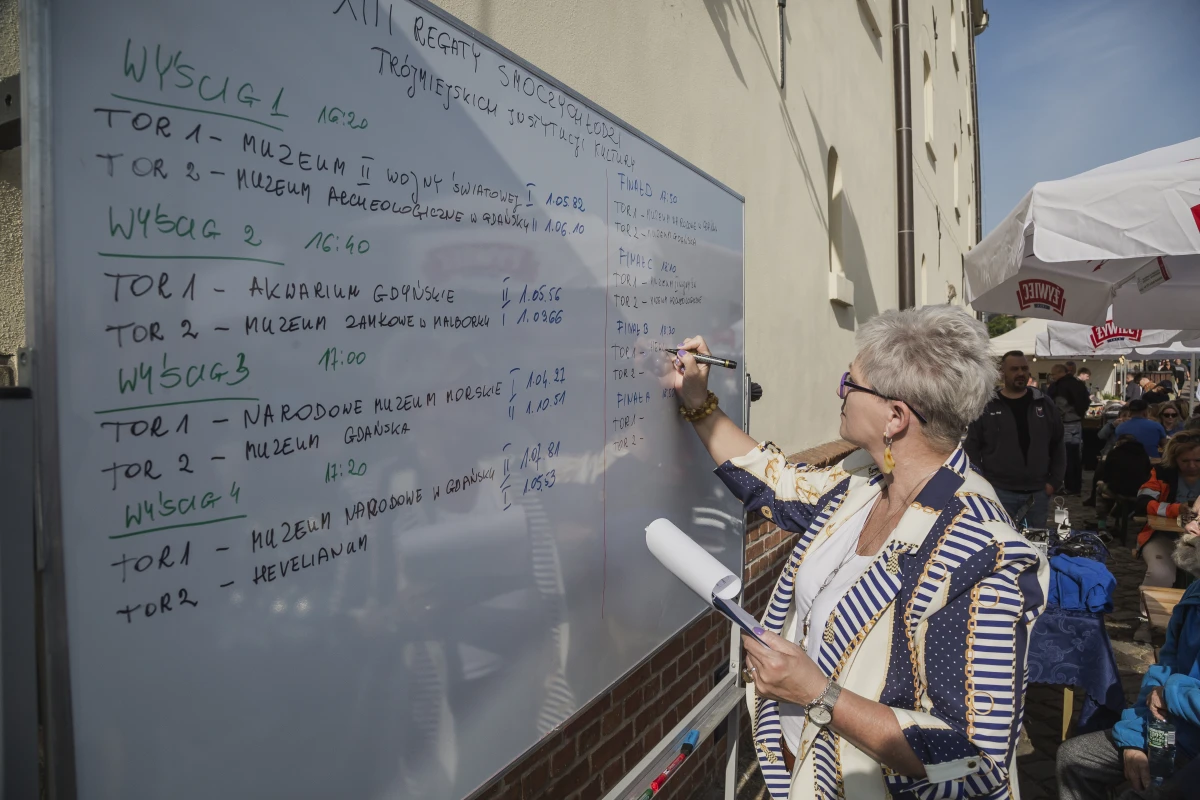 XIII REGATY SMOCZYCH ŁODZI
TRÓJMIEJSKICH INSTYTUCJI KULTURY
WYŚCIG 1 16:20
TOR 1 - MUZEUM II WOJNY ŚWIATOWEJ I 1.05.82
TOR 2 - MUZEUM ARCHEOLOGICZNE W GDAŃSKU II 1.06.10
WYŚCIG 2 16:40
TOR 1 - AKWARIUM GDYŃSKIE II 1.05.56
TOR 2 - MUZEUM ZAMKOWE W MALBORKU I 1.03.66
WYŚCIG 3 17:00
TOR 1 - NARODOWE MUZEUM MORSKIE I 1.04.27
TOR 2 - MUZEUM GDAŃSKA II 1.10.51
WYŚCIG 4 17:20
TOR 1 - MUZEUM NARODOWE W GDAŃSKU II 1.07.81
TOR 2 - HEVELIANUM I 1.05.53
FINAŁ D 17:50
TOR 1 - MUZEUM NARODOWE W
TOR 2 - MUZEUM GDAŃSKA
FINAŁ C 18:10
TOR 1 - MUZEUM
TOR 2 -
FINAŁ B 18:30
TOR 1 -
TOR 2 -
FINAŁ A
TOR 1 -
TOR 2 -
ŻYWIEC
ŻYWIEC